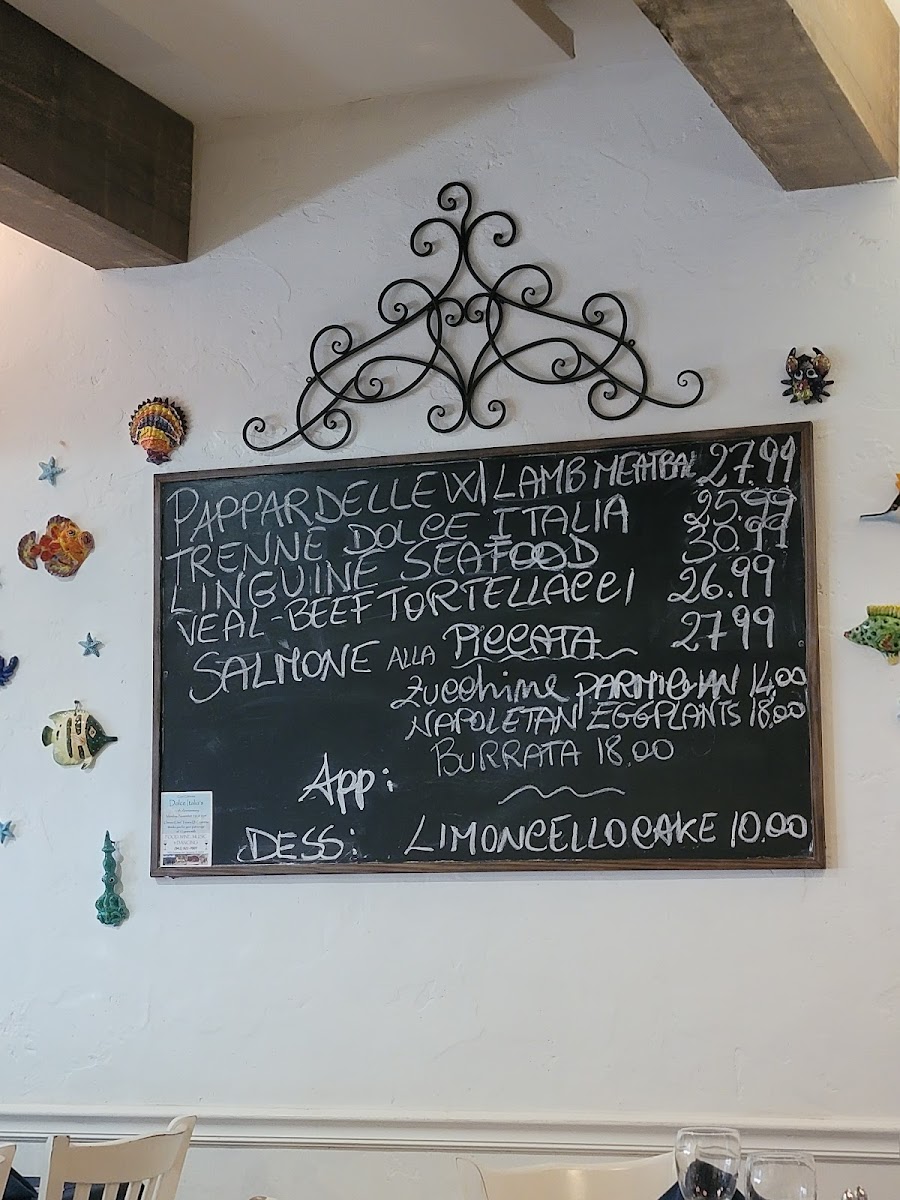 PAPPARDELLE W/ LAMB MEATBAL 27.99
TRENNE DOLCE ITALIA 25.99
LINGUINE SEAFOOD 30.99
VEAL-BEEF TORTELLACCI 26.99
SALMONE ALLA PICCATA 27.99
Zucchine PARMIGIAN 14,00
NAPOLETAN EGGPLANTS 18,00
BURRATA 18.00
App:
DESS: LIMONCELLO CAKE 10.00
Dolce Italia's